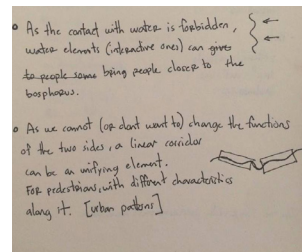 • As the contact with water is forbidden,
water elements (interactive ones) can give
to people some bring people closer to the
bosphorus.
• As we cannot (or dont want to) change the functions
of the two sides, a linear corridor
can be an unifying element.
For pedestrians, with different characteristics
along it. [urban patterns]